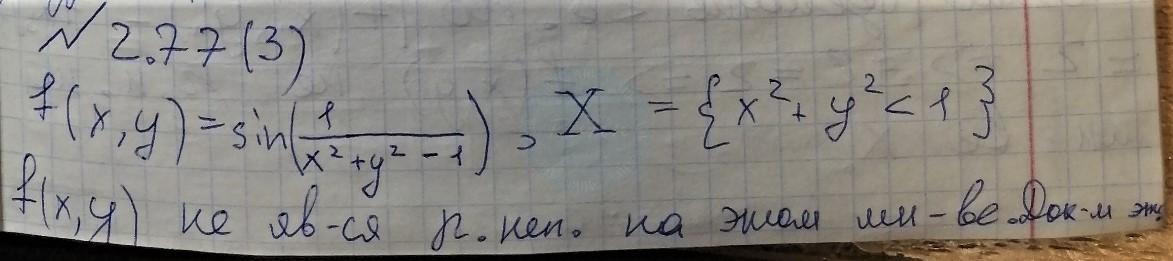 № 2.77 (3)
f(x,y) = sin(1/(x²+y²-1)), X = {x²+y²<1}
f(x,y) не яв-ся р. неп. на этом мн-ве. Док-м это